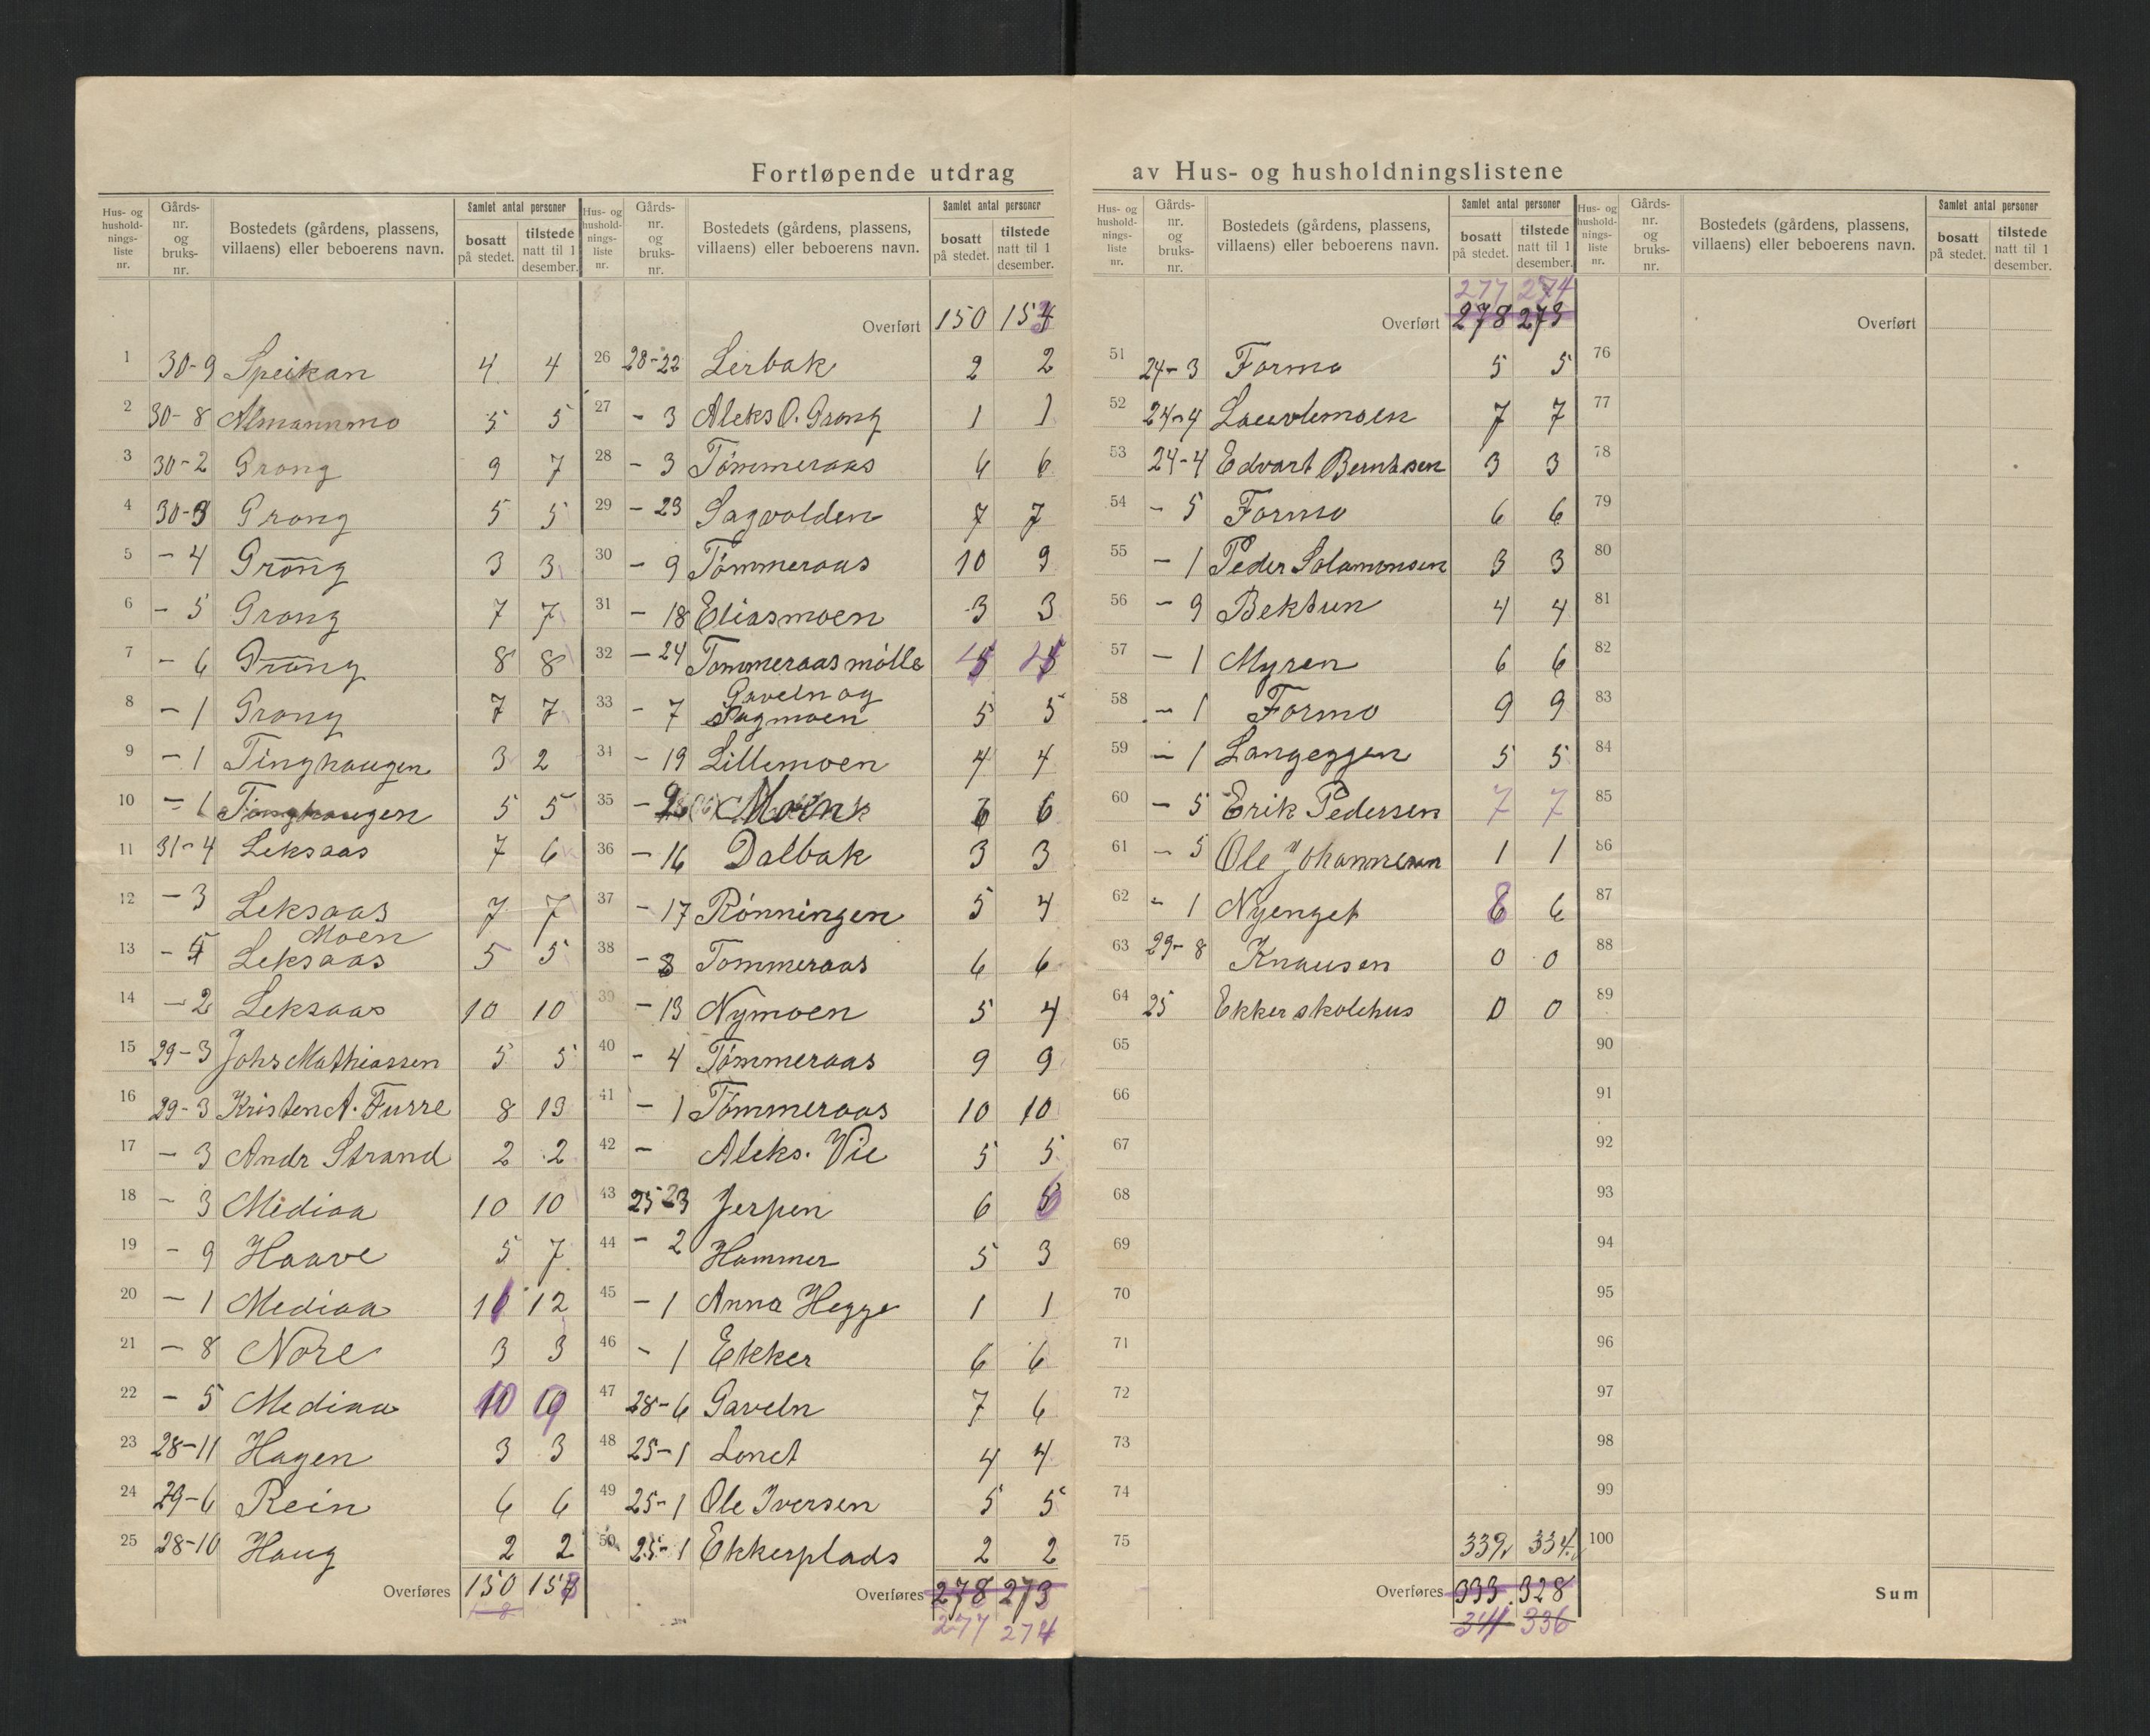 Fortløpende utdrag av Hus- og husholdningslistene
Hus- og hushold-nings-liste nr. Gårds-nr. og bruks-nr. Bostedets (gårdens, plassens, villaens) eller beboerens navn. Samlet antal personer bosatt på stedet. tilstede natt til 1 desember.
1 30-9 Speikan 4 4
2 30-8 Almannmo 5 5
3 30-2 Grong 9 7
4 30-3 Grong 5 5
5 - 4 Grong 3 3
6 - 5 Grong 7 7
7 - 6 Grong 8 8
8 - 1 Grong 7 7
9 - 1 Tinghaugen 3 2
10 - 1 Tinghaugen 5 5
11 31-4 Leksaas 7 6
12 - 3 Leksaas 7 7
Moen
13 - Leksaas 5 5
14 - 2 Leksaas 10 10
15 29-3 Johs Mathiassen 5 5
16 29-3 Kristen A. Furre 8 13
17 - 3 Andr Strand 2 2
18 - 3 Mediaa 10 10
19 - 9 Haave 5 7
20 - 1 Mediaa 12
21 - 8 Nore 3 3
22 - 5 Mediaa 10
23 28-11 Hagen 3 3
24 29-6 Rein 6 6
25 28-10 Haug 2 2
Overføres 150
Hus- og hushold-nings-liste nr. Gårds-nr. og bruks-nr. Bostedets (gårdens, plassens, villaens) eller beboerens navn. Samlet antal personer bosatt på stedet. tilstede natt til 1 desember.
Overført 150
26 28-22 Lerbak 2 2
27 - 3 Aleks O. Grong 1 1
28 - 3 Tömmeraas 6 6
29 - 23 Sagvolden 7 7
30 - 9 Tömmeraas 10 9
31 - 18 Eliasmoen 3 3
32 - 24 Tømmeraas mölle
Gaveln og
33 - 7 Sagmoen 5 5
34 - 19 Lillemoen 4 4
35 - 6 6
36 - 16 Dalbak 3 3
37 - 17 Rönningen 5 4
38 - 8 Tommeraas 6 6
39 - 13 Nymoen 5 4
40 - 4 Tömmeraas 9 9
41 - 1 Tömmeraas 10 10
42 - Aleks. Vie 5 5
43 25 23 Jerpen 6
44 - 2 Hammer 5 3
45 - 1 Anna Hegge 1 1
46 - 1 Ekker 6 6
47 28-6 Gaveln 7 6
48 25-1 Lonet 4 4
49 25-1 Ole Iversen 5 5
50 25-1 Ekkerplads 2 2
Overføres 278 273
277 274
Hus- og hushold-nings-liste nr. Gårds-nr. og bruks-nr. Bostedets (gårdens, plassens, villaens) eller beboerens navn. Samlet antal personer bosatt på stedet. tilstede natt til 1 desember.
277 274
Overført 278 273
51 24-3 Formo 5 5
52 24-4 7 7
53 24-4 Edvart 3 3
54 - 5 Formo 6 6
55 - 1 Peder Salamonsen 3 3
56 - 9 Bektun 4 4
57 - 1 Myren 6 6
58 - 1 Formo 9 9
59 - 1 Langeggen 5 5
60 - 5 Erik Pedersen 7 7
61 - 5 Ole Johannesen 1 1
62 - 1 Nyenget 6
63 29-8 Knausen 0 0
64 25 Ekker skolehus 0 0
65
66
67
68
69
70
71
72
73
74
75 339 334
Overføres 333 328
341 336
Hus- og hushold-nings-liste nr. Gårds-nr. og bruks-nr. Bostedets (gårdens, plassens, villaens) eller beboerens navn. Samlet antal personer bosatt på stedet. tilstede natt til 1 desember.
Overført
76
77
78
79
80
81
82
83
84
85
86
87
88
89
90
91
92
93
94
95
96
97
98
99
100
Sum